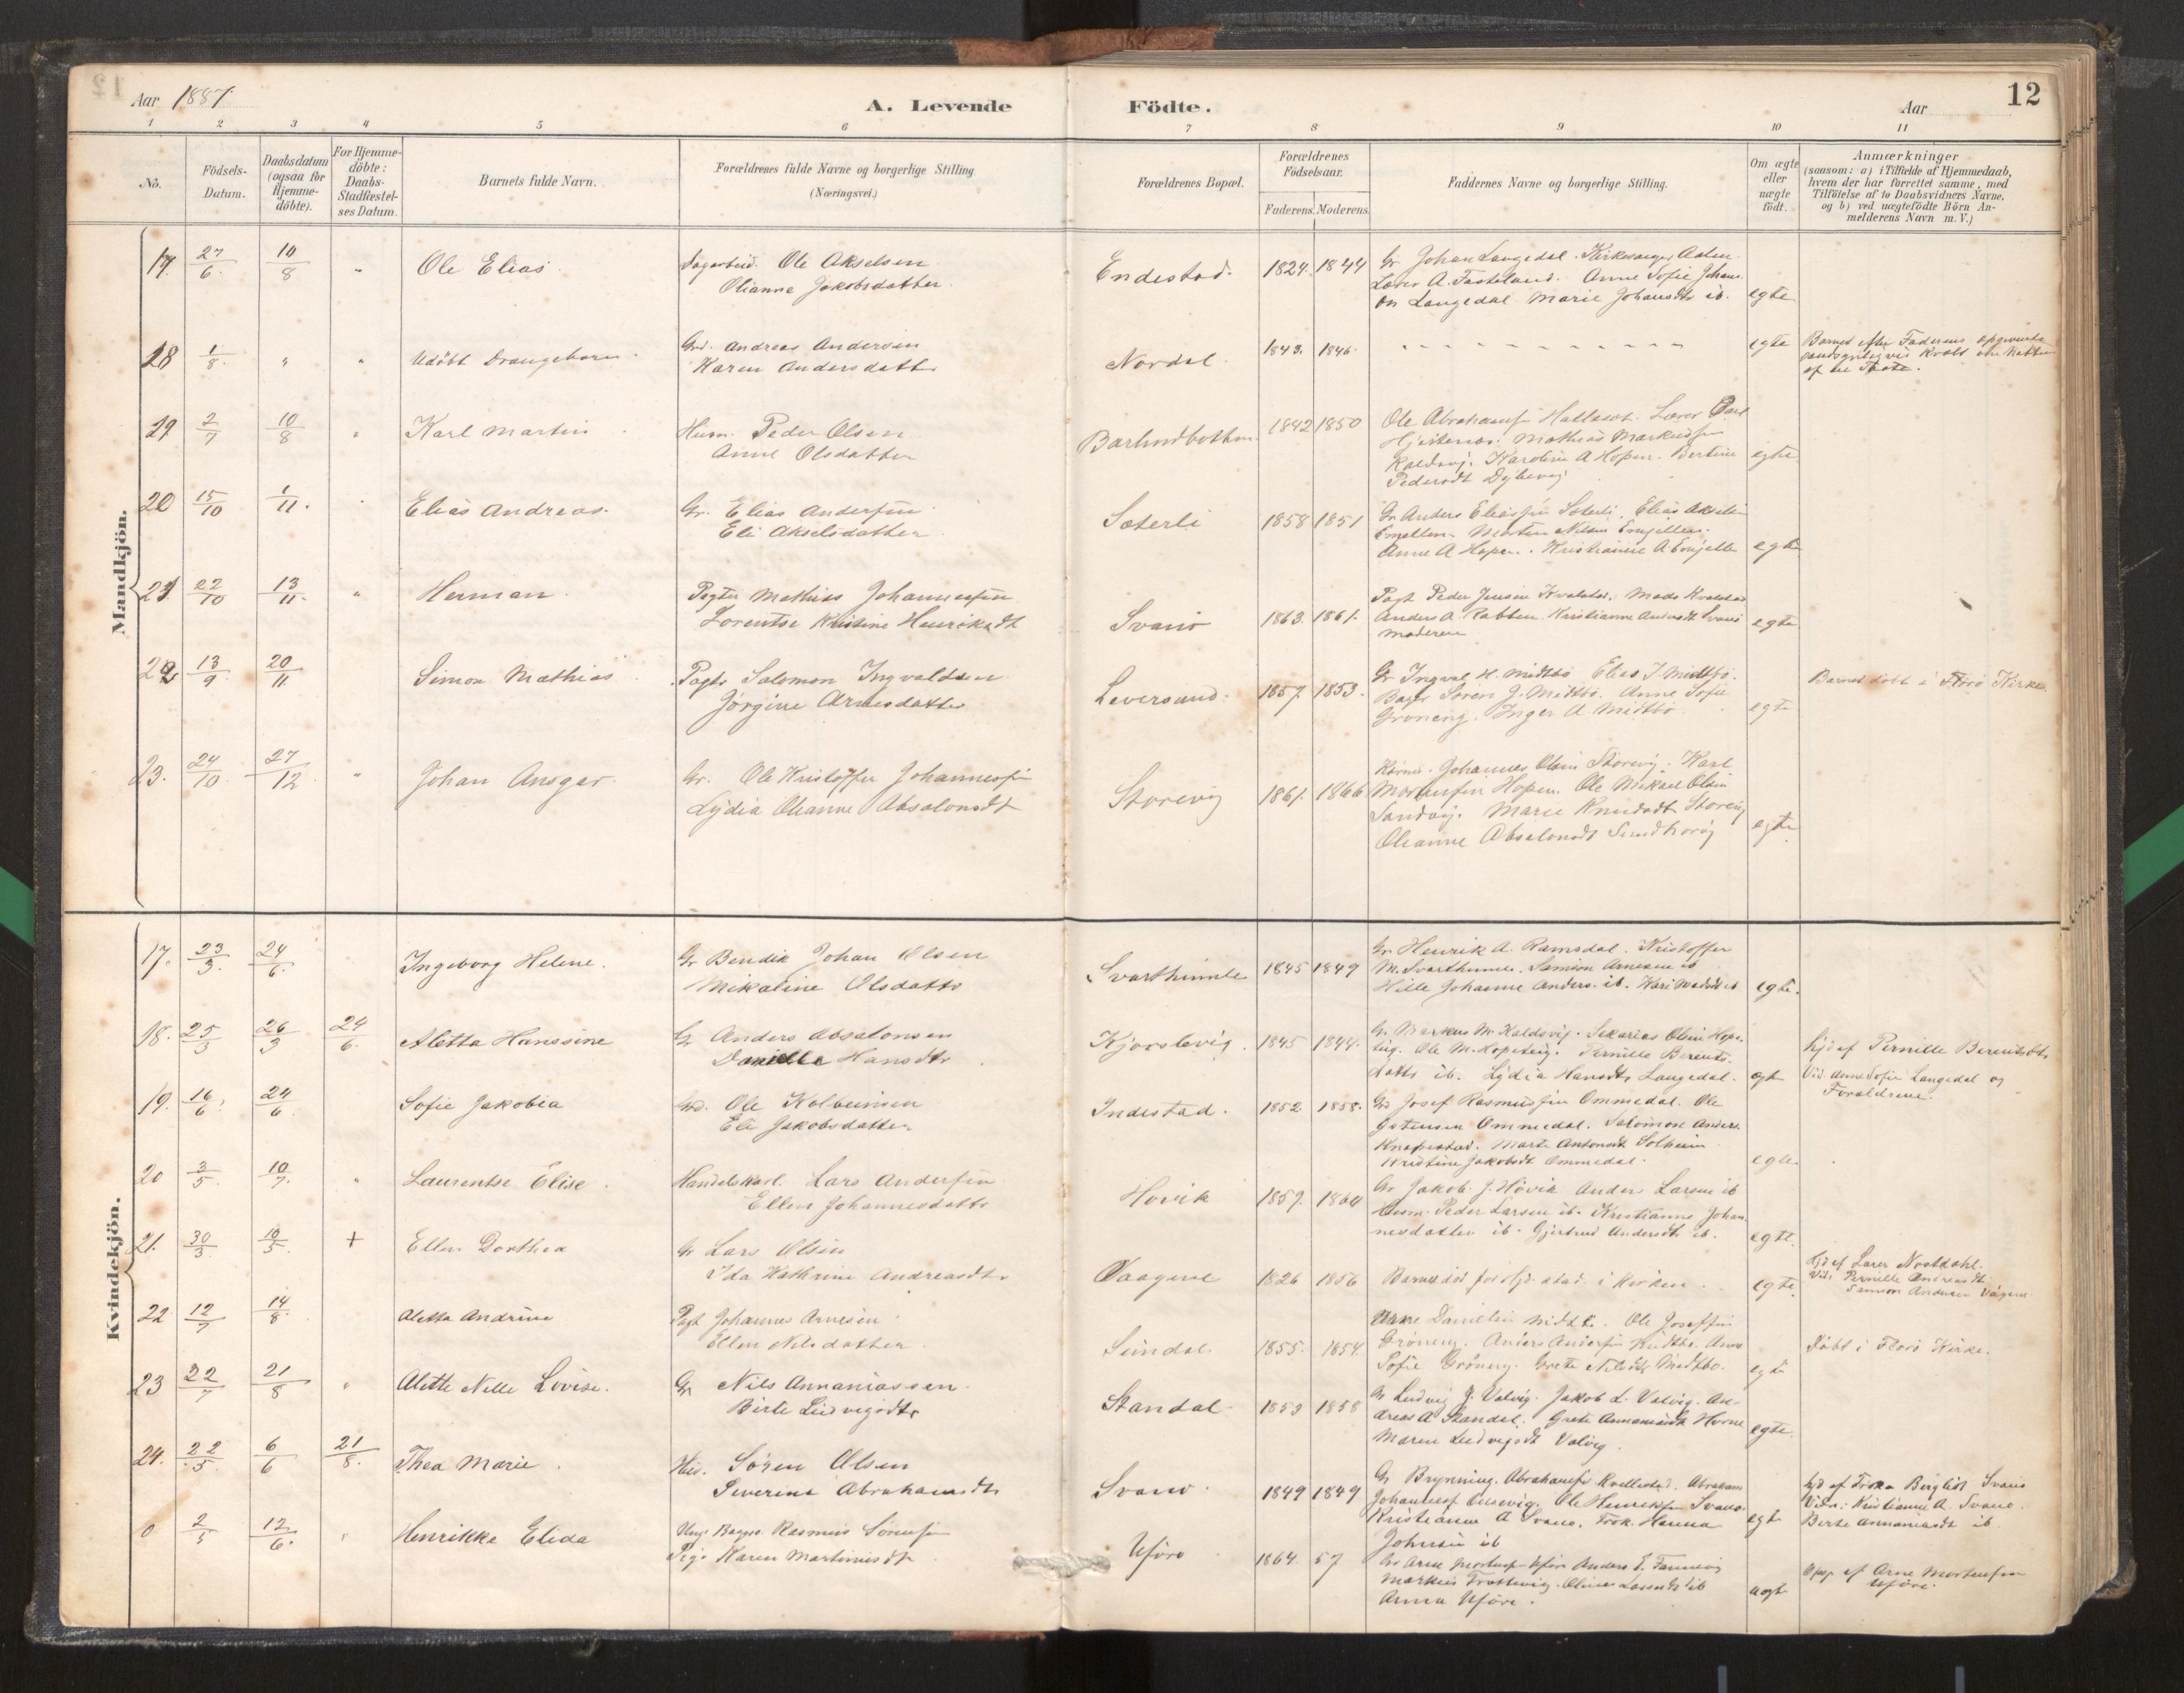 Aar 1887.
A. Levende Födte.
Aar
12
1 2 3 4 5 6 7 8 9 10 11
No.
Födsels-Datum.
Daabsdatum (ogsaa for Hjemme-döbte).
For Hjemme-döbte: Daabs-Stadfæstel-ses Datum.
Barnets fulde Navn.
Forældrenes fulde Navne og borgerlige Stilling. (Næringsvei.)
Forældrenes Bopæl.
Forældrenes Födselsaar.
Faderens. Moderens.
Faddernes Navne og borgerlige Stilling.
Om ægte eller uægte födt.
Anmærkninger (saasom: a) i Tilfælde af Hjemmedaab, hvem der har forrettet samme, med Tilföielse af to Daabsvidners Navne, og b) ved uægtefödte Börn An-melderens Navn m. V.)
Mandkjön.
17. 27/6. 10/8 " Ole Elias. Ole Akselsen
Olianne Jakobsdatter.
Endestad. 1824. 1844 Gr. Johan Langedal. Kirkesanger Aalen.
Lærer A. Fasteland. Anne Sofie Johan
Langedal Marie Johansdtr ib. egte
18 1/8. " " Udöbt Drengebarn. Grd. Andreas Andersen
Karen Andersdattr
Nordal. 1843. 1846. - - - - - - - - - egte Barnet efter Faderens opgivende
kvalt om Natten
af
19 2/7 10/8 " Karl Martin Husm. Peder Olsen
Anne Olsdatter
Barlindbotten 1842 1850 Ole Abrahamsen Lærer Carl
Hjertenæs. Mathias Markussen
Kaldsvig. Karoline A Hopen. Bertine
Pedersdt Dybevig egte.
20 15/10 1/11. Elias Andreas. Gr. Elias Andersen
Eli Akselsdatter
Sæterli 1858 1851 Gr Anders Eliassen Sæterli. Elias Aksels
Martin Nilsen
Anne A Hopen. Kristianne A egte
21 22/10 13/11. " Herman. Pagter Mathias Johannessen
Lorentse Kristine Henriksdt
Svanö 1863. 1861. Pagt Peder Jensen Kvalstad. Mads Kvalstad
Anders A. Rabben. Kristianne Andersdt Svanö
Moderen egte
22 13/9. 20/11 Simon Mathias. Pagtr Salomon Ingvaldsen
Jörgine Arnesdatter
Leversund. 1857. 1853. Gr Ingval H. Midtbö Elias I Midtbö.
Sören J. Midtbö. Anne Sofie
Gröneng. Inger A Midtbö. egte Barnet döbt i Florö Kirke.
23. 24/10. 27/12 " Johan Ansgar. Gr. Ole Kristoffer Johannesen
Lydia Oleanne Absalonsdt
Storevig 1861. 1866 Johannes Olsen Storevig. Karl
Mortensen Hopen. Ole Mikael Olsen
Sandvig. Marie Knudsdt Storevig
Oleanne Absalonsdt egte
Kvindekjön.
17. 23/3. 24/6. Ingeborg Helene. Gr Bendik Johan Olsen
Mikaline Olsdattr
Svarthumle 1845 1849 Gr. Henrik A. Ramsdal. Kristoffer
M. Svarthumle. Samson Arnesen ib
Hille Johanne Anders. ib. Kari ib egte.
18. 25/3 26/3 24/6. Aletta Hanssine Gr Anders Absalonsen
Danielle Hansdtr
Kjorslevig. 1845 1844. Gr. Markus M. Kaldsvig. Sakarias Olsen Hope-
teig. Ole M. Hopeteig. Pernille Berents-
dattr ib. Lydia Hansdtr Langedal. egte Hjd af Pernille Berentsdtr
Vid. Anne Sofie Langedal og
Forældrene.
19. 16/6. 24/6. Sofie Jakobia Grd. Ole Kolbeinsen
Eli Jakobsdatter
Indestad. 1852 1858. Gr Josef Rasmussen Ommedal. Ole
Ommedal. Salomon Anders.
Knapestad. Marte Antonsdt Solheim
Kristine Jakobsdt Ommedal. egte
20 3/5. 10/7. " Laurentse Elise. Handelskarl. Lars Andersen
Ellen Johannesdattr
Hovik 1859. 1864 Gr Jakob J. Hövik Anders Larsen ib
Husm. Peder Larsen ib. Kristianne Johan-
nesdatter ib. Gjertrud Andersdt ib. egte.
21. 30/3. 10/5. + Ellen Dorthea Gr Lars Olsen
Ida Kathrine Andreasdtr
Vaagene 1826 1856 Barnet död för i Kirken. egte. Hjd af Lærer Nostdahl.
Vid: Pernille Andreasdt
Samson Andersen Vågene.
22 12/7 14/8. Aletta Andrine Pagt Johannes Arnesen
Ellen Nilsdatter
Sundal 1855. 1854. Arne Danielsen Midtbö. Ole Josefsen
Gröneng. Anders Andersen Midtbö. Anne
Sofie Gröneng. Grete Nilsdtr Midtbö. egte Döbt i Florö Kirke.
23 22/7 21/8 " Alette Nille Lovise. Gr Nils Annaniassen.
Birte Ludvegsdtr
Standal 1853 1858 Gr Ludvig J. Valvig. Jakob L. Valvig. An-
dreas A Standal. Grete Annaniasdt Horne
Maren Ludvegsdt Valvig. egte.
24. 22/5. 6/6 21/8. Thea Marie. Hus. Sören Olsen
Severine Abrahamsdtr
Svanö. 1849 1849 Gr Brynning. Abrahamsen Kvellestad. Abraham
Johannesen Ole Henriksen Svanö.
Kristianne A Svanö. Frøk. Hanna
Johnsen ib egte Hjd af Berglid Svanö
Vidn: Kristianne A. Svanö.
Berte Annaniasdt ib.
0 2/5 12/6. " Henrikke Elida Ung. Rasmus Sörensen
Pige Karen Martinusdt
Uföre 1864. 57 Gr Arne Mortensen Uföre Anders E.
Markus Oline Larsdt ib
Anna Uföre. uegte Opg. af Arne Mortensen
Uföre.